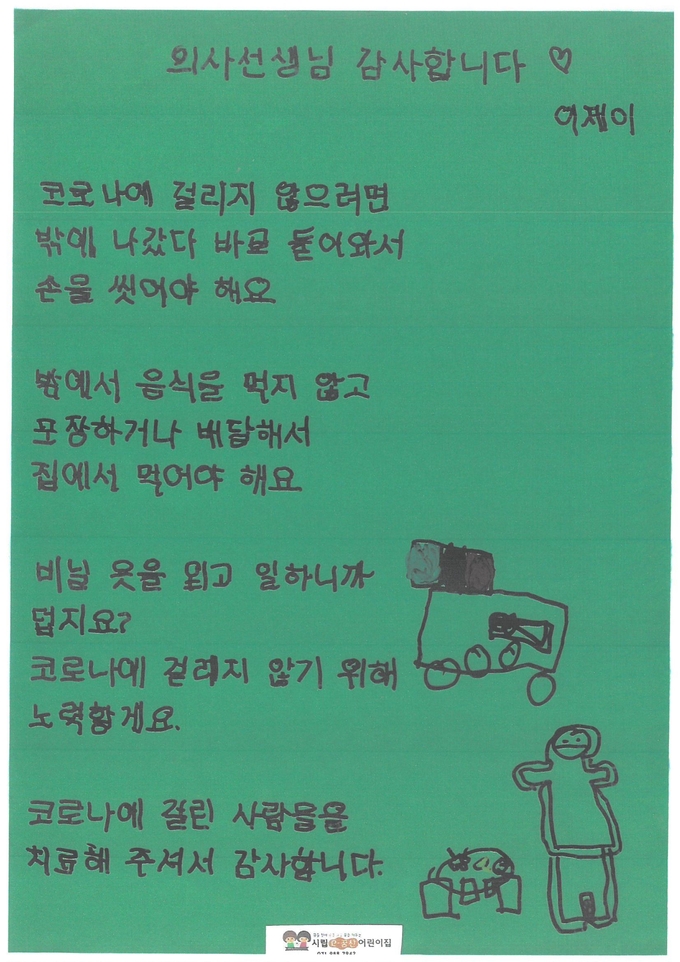 의사선생님 감사합니다 ♡
이제이
코로나에 걸리지 않으려면
밖에 나갔다 바로 돌아와서
손을 씻어야 해요
밖에서 음식을 먹지 않고
포장하거나 배달해서
집에서 먹어야 해요
비닐 옷을 입고 일하니까
덥지요?
코로나에 걸리지 않기 위해
노력할게요.
코로나에 걸린 사람들을
치료해 주셔서 감사합니다.
시립 어린이집